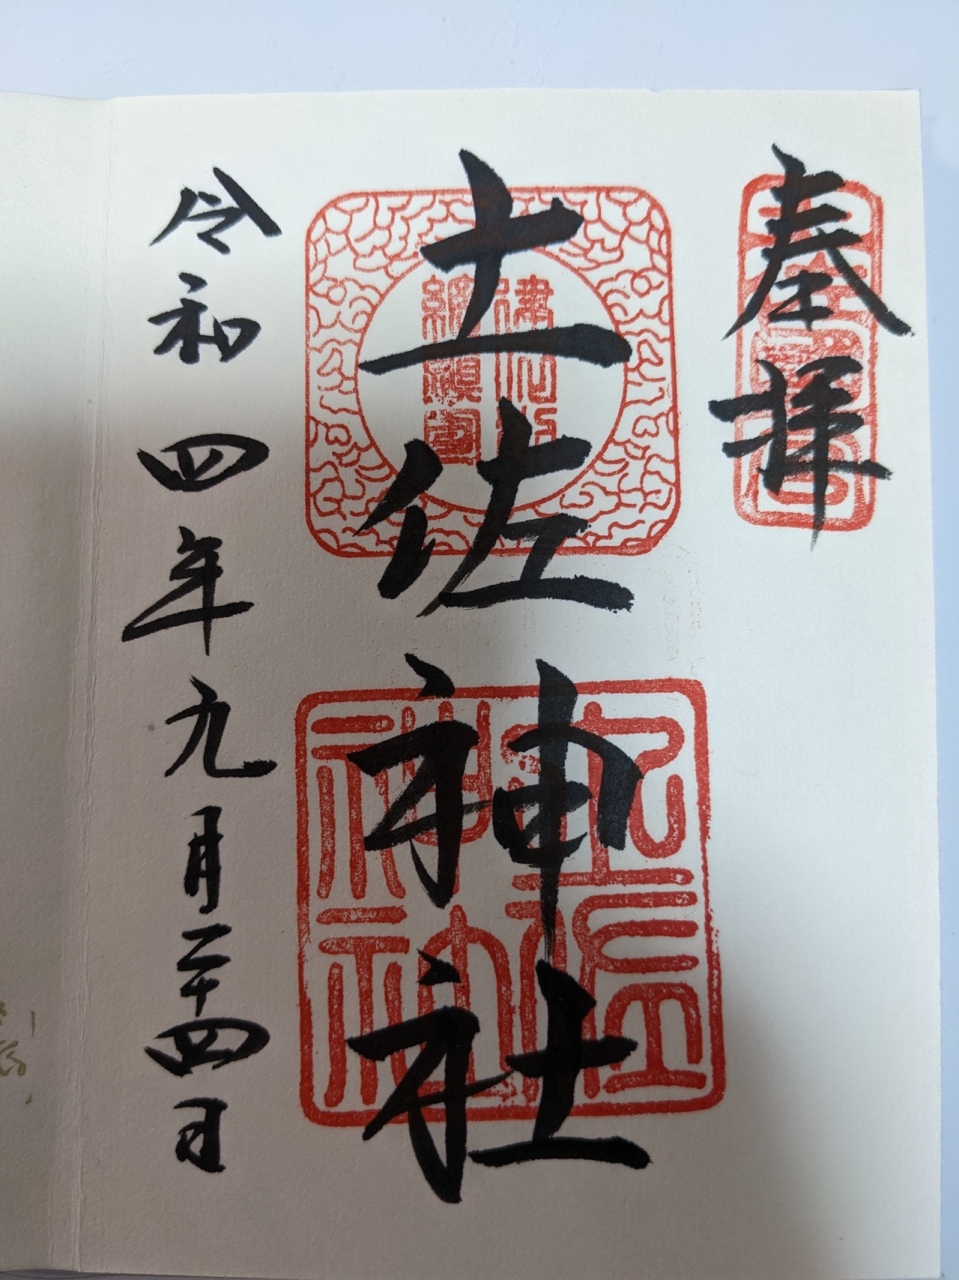 奉拝
土佐神社
令和四年九月二十四日